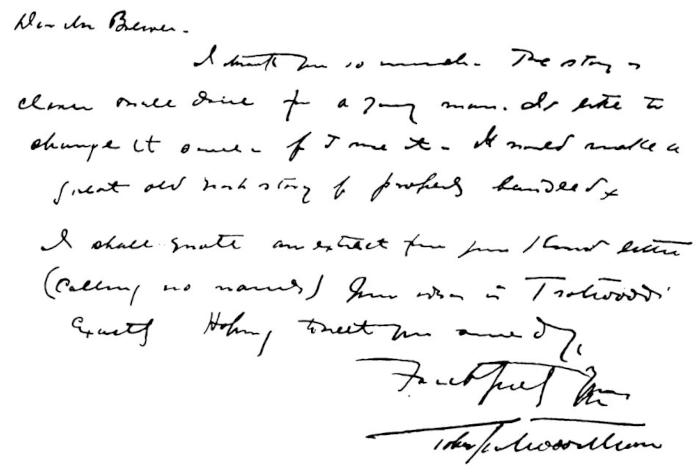 Dear Mr Brewer.
I thank you so much. The story is
clever & well done for a young man. I'd like to
change it some if I use it. It would make a
great old story if properly handled
I shall quote an extract from your kind letter
(calling no names) Your idea is Trotwood's
Exactly Hoping to meet you some day,
Faithfully Yours
John Trotwood Moore